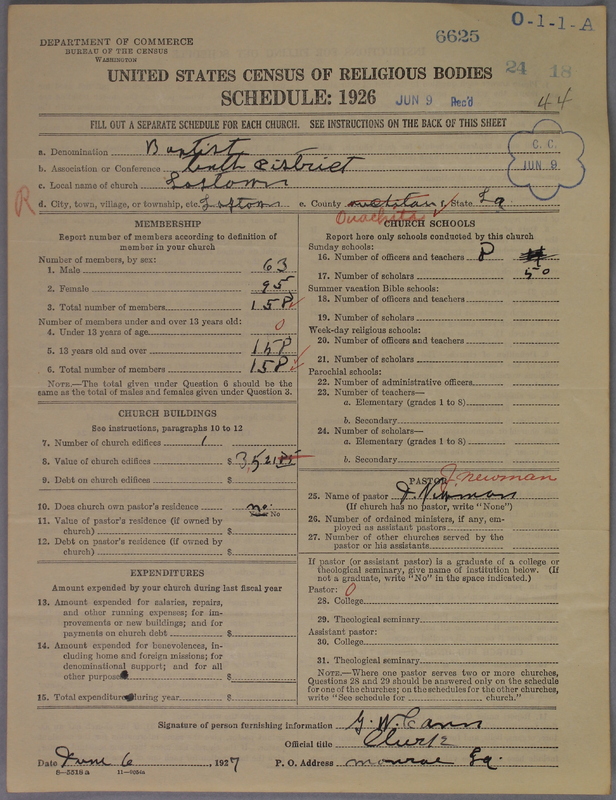 O-1-1-A
6625
DEPARTMENT OF COMMERCE
BUREAU OF THE CENSUS
WASHINGTON
24 18
UNITED STATES CENSUS OF RELIGIOUS BODIES
SCHEDULE: 1926 JUN 9 Rec'd
44
FILL OUT A SEPARATE SCHEDULE FOR EACH CHURCH. SEE INSTRUCTIONS ON THE BACK OF THIS SHEET
C. C.
JUN 9
a. Denomination Baptist
b. Association or Conference district
c. Local name of church
R d. City, town, village, or township, etc. e. County f. State La
Ouachita
MEMBERSHIP
Report number of members according to definition of
member in your church
Number of members, by sex:
1. Male 63
2. Female 95
3. Total number of members 158
Number of members under and over 13 years old:
4. Under 13 years of age 0
5. 13 years old and over 158
6. Total number of members 158
NOTE.—The total given under Question 6 should be the
same as the total of males and females given under Question 3.
CHURCH BUILDINGS
See instructions, paragraphs 10 to 12
7. Number of church edifices 1
8. Value of church edifices $
9. Debt on church edifices $
10. Does church own pastor's residence no.
Yes or No
11. Value of pastor's residence (if owned by
church) $
12. Debt on pastor's residence (if owned by
church) $
EXPENDITURES
Amount expended by your church during last fiscal year
13. Amount expended for salaries, repairs,
and other running expenses; for im-
provements or new buildings; and for
payments on church debt $
14. Amount expended for benevolences, in-
cluding home and foreign missions; for
denominational support; and for all
other purposes $
15. Total expenditure during year. $
CHURCH SCHOOLS
Report here only schools conducted by this church
Sunday schools:
16. Number of officers and teachers 8
17. Number of scholars 50
Summer vacation Bible schools:
18. Number of officers and teachers
19. Number of scholars
Week-day religious schools:
20. Number of officers and teachers
21. Number of scholars
Parochial schools:
22. Number of administrative officers
23. Number of teachers—
a. Elementary (grades 1 to 8)
b. Secondary
24. Number of scholars—
a. Elementary (grades 1 to 8)
b. Secondary
PASTOR J. Newman
25. Name of pastor J. Newman
(If church has no pastor, write "None")
26. Number of ordained ministers, if any, em-
ployed as assistant pastors
27. Number of other churches served by the
pastor or his assistants
If pastor (or assistant pastor) is a graduate of a college or
theological seminary, give name of institution below. (If
not a graduate, write "No" in the space indicated.)
Pastor: 0
28. College
29. Theological seminary
Assistant pastor:
30. College
31. Theological seminary
NOTE.—Where one pastor serves two or more churches,
Questions 28 and 29 should be answered only on the schedule
for one of the churches; on the schedules for the other churches,
write "See schedule for church."
Signature of person furnishing information G. W.
Official title Clerk
Date June 6, 1927 P. O. Address monroe La.
8—5518a 11—9054a